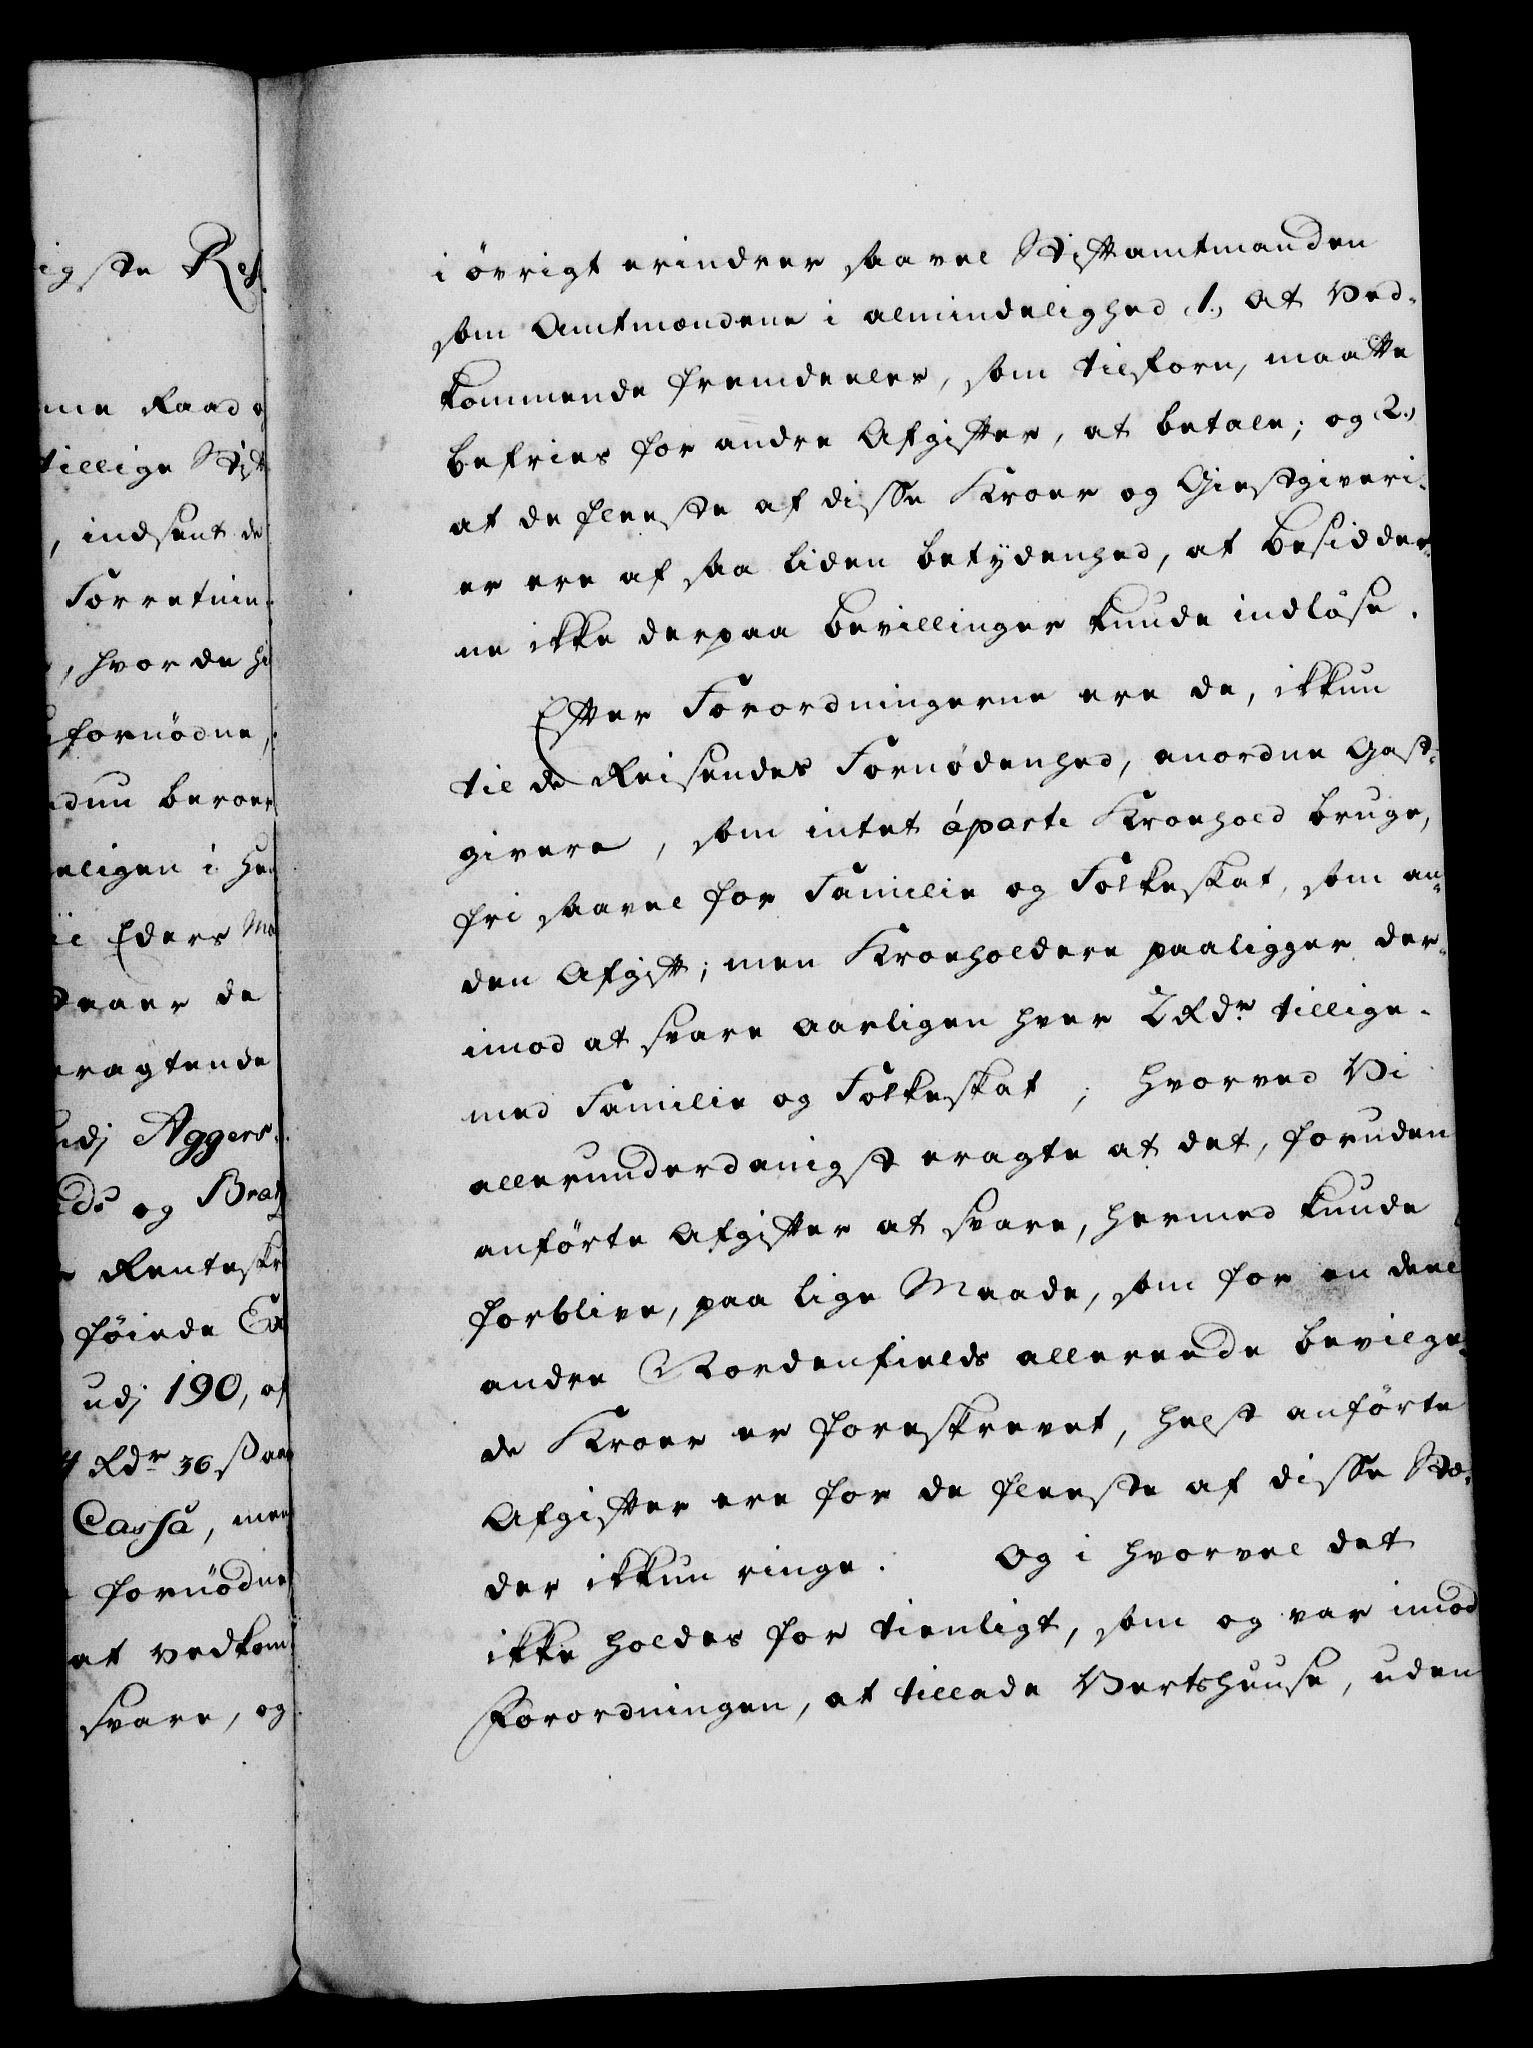 igste Ref.
me Raad o
tillige Stift
, indsent de
Forretnin¬
, hvor de hi
fornödne,
dnu beroer
eligen i He
il Eders Ma
staaer de
eragtende
udj Aggers¬
ds og Brat
Renteskr
föiede Ex
udj 190, af
4 Rdr 36 ß aar
Cassa, men
fornödne
at vedkom¬
svare, og
i övrigt erindrer saavel Stiftamtmanden
som Amtmændene i almindelighed 1., at Ved¬
kommende fremdeeler, som tilforn, maatte
befries for andre Afgifter, at betale; og 2.,
at de fleeste af disse Kroer og Giestgiveri¬
er ere af saa liden betydenhed, at besidder¬
ne ikke derpaa bevillinger kunde indlöse.
Efter Forordningerne ere de, ikkun
til de Reisendes Fornødenhed, anordne Gast¬
givere, som intet áparte Kroehold bruge,
fri saavel for Familie og Folkeskat, som an¬
den Afgift; men Kroeholdere paaligger der¬
imod at svare aarligen hver 2 Rdr tillige¬
med Familie og Folkeskat; hvorved Vi
allerunderdanigst eragte at det, foruden
anförte Afgifter at svare, hermed kunde
forblive, paa lige Maade, som for en deel
andre Nordenfields allereede bevilge¬
de Kroer er foreskrevet, helst anförte
Afgifter ere for de fleeste af disse Stæ¬
der ikkun ringe. Og i hvorvel det
ikke holdes for tienligt, som og var imod
Forordningen, at tillade Vertshuuse, uden